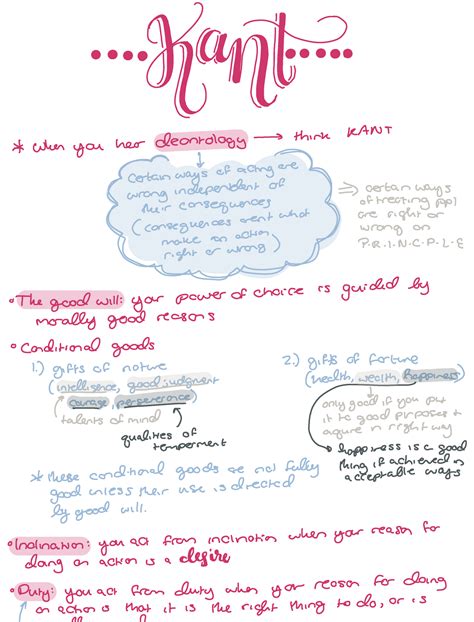 Kant
* when you hear deontology → think KANT
certain ways of acting are
wrong independent of
their consequences
(consequences arent what
make an action
right or wrong)
⇒ certain ways
of treating ppl
are right or
wrong on
P.R.I.N.C.P.L.E
• The good will: your power of choice is guided by
morally good reasons
• Conditional goods
1.) gifts of nature
(intelligence, good judgment
courage, perseverance)
talents of mind
qualities of
temperment
2.) gifts of fortune
(health, wealth, happiness)
only good if you put
it to good purposes +
aquire in right way
happiness is a good
thing if achieved in
acceptable ways
* these conditional goods are not fully
good unless their use is directed
by good will.
• Inclination: you act from inclination when your reason for
doing an action is a desire
• Duty: you act from duty when your reason for doing
an action is that it is the right thing to do, or is